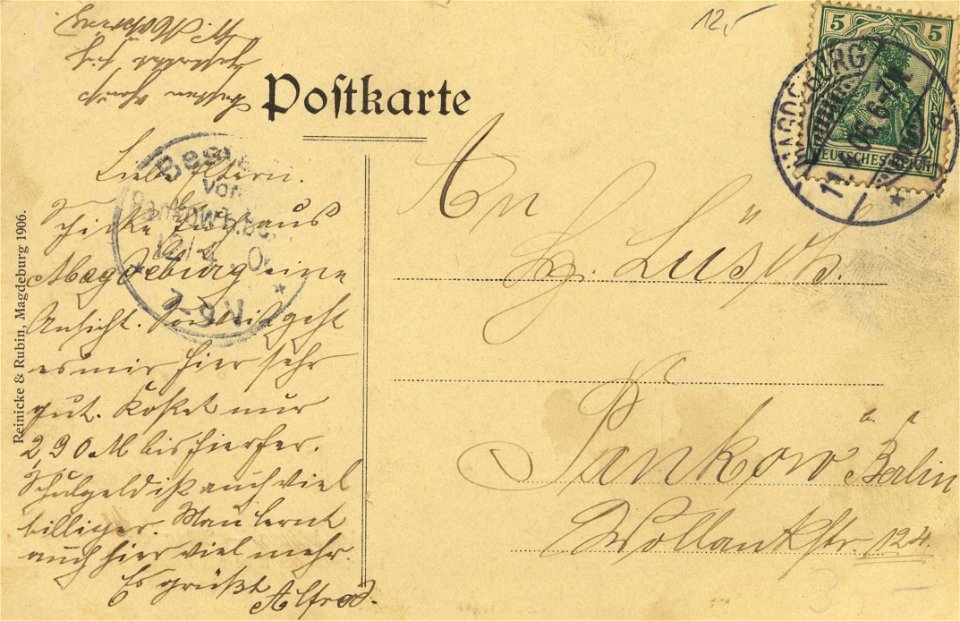 12,-
5 5
DEUTSCHES REICH
MAGDEBURG
11. 06. 6-7N.
Postkarte
Beste
vom
Pankow b. Be
12/4. 0
7-8
Liebe Eltern.
Schicke Euch aus
Magdeburg eine
Ansicht. Soweit geht
es mir hier sehr
gut. Kostet nur
2,90 M bis hierher.
Schulgeld ist auch viel
billiger. Man lernt
auch hier viel mehr.
Es grüßt Alfred.
An
Lüsch.
Pankow b. Berlin
Wollankstr. 124.
Reinicke & Rubin, Magdeburg 1906.